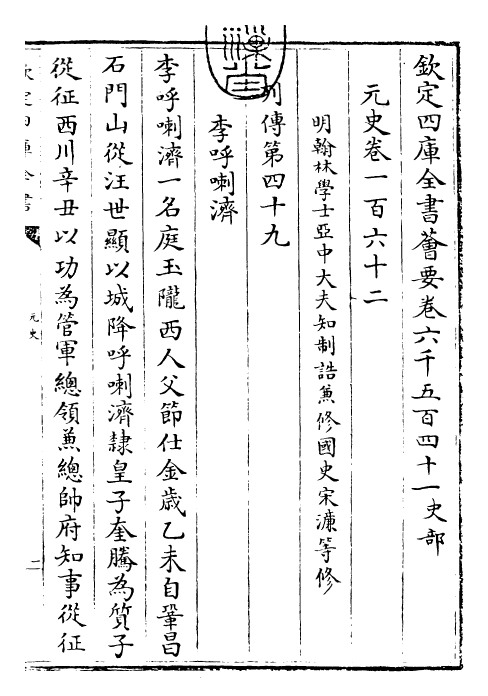 欽定四庫全書薈要卷六千五百四十一史部
元史卷一百六十二
明翰林學士亞中大夫知制誥兼修國史宋濂等修
列傳第四十九
李呼喇濟
李呼喇濟一名庭玉隴西人父節仕金歳乙未自鞏昌
石門山從汪世顯以城降呼喇濟隸皇子奎騰為質子
從征西川辛丑以功為管軍總領兼總帥府知事從征
欽定四庫全書
元史
二